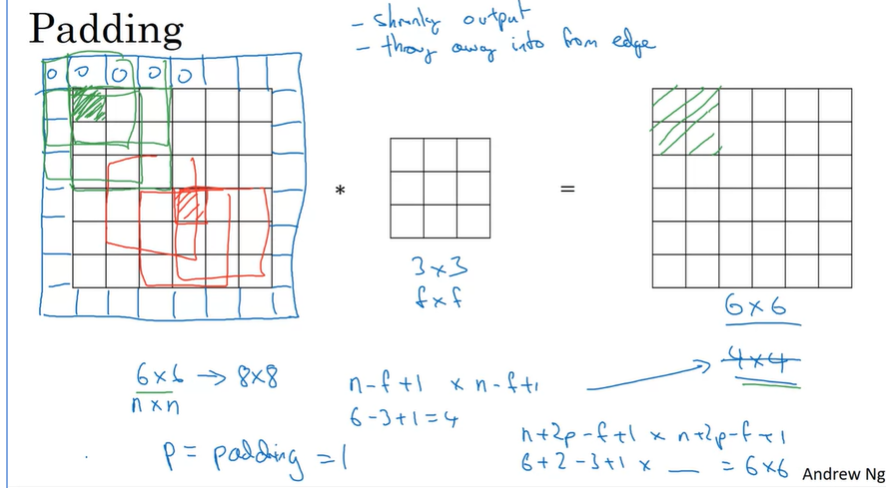 Padding
- shrinky output
- throw away info from edge
0 0 0 0 0
* =
3x3
fxf
6x6
4x4
6x6 → 8x8
nxn
n-f+1 x n-f+1
6-3+1=4
p = padding = 1
n+2p-f+1 x n+2p-f+1
6+2-3+1 x __ = 6x6
Andrew Ng